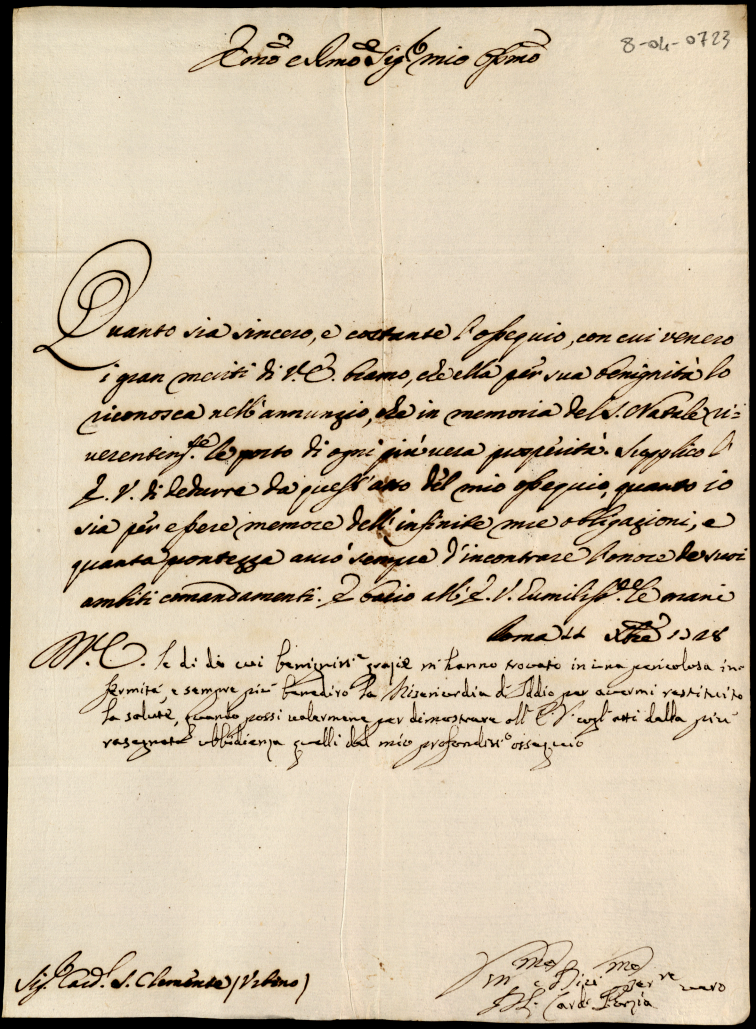 8-04-0723
Em̃o e Rm̃o Sig.r mio Oss.mo
Quanto sia sincero, e costante l'ossequio, con cui venero
i gran meriti di V.E. bramo, che ella per sua benignità lo
riconosca nell'annunzio, che in memoria del S. Natale ri-
verentem.te le porto di ogni più vera prosperità. Supplico l'
E. V. di dedurre da quest'atto del mio ossequio, quanto io
sia per essere memore dell'infinite mie obligazioni, e
quanta prontezza avrò sempre d'incontrare l'onore de suoi
ambiti comandamenti. E bacio all'E. V. umiliss.te le mani
Roma 11 Xbre 1728
V.E. le di cui benigniss.e grazie m'hanno trovato in una pericolosa in-
fermità, e sempre più benedirò la Misericordia d'Iddio per avermi restituito
la salute, quando possi valermene per dimostrare all'E.V. cogl'atti dalla più
rasegnata ubbidienza quelli dal mio profondiss.o ossequio
Sig.r Card.l S. Clemente (Urbino)
Um.mo e
Ser.re vero
Card. Porzia